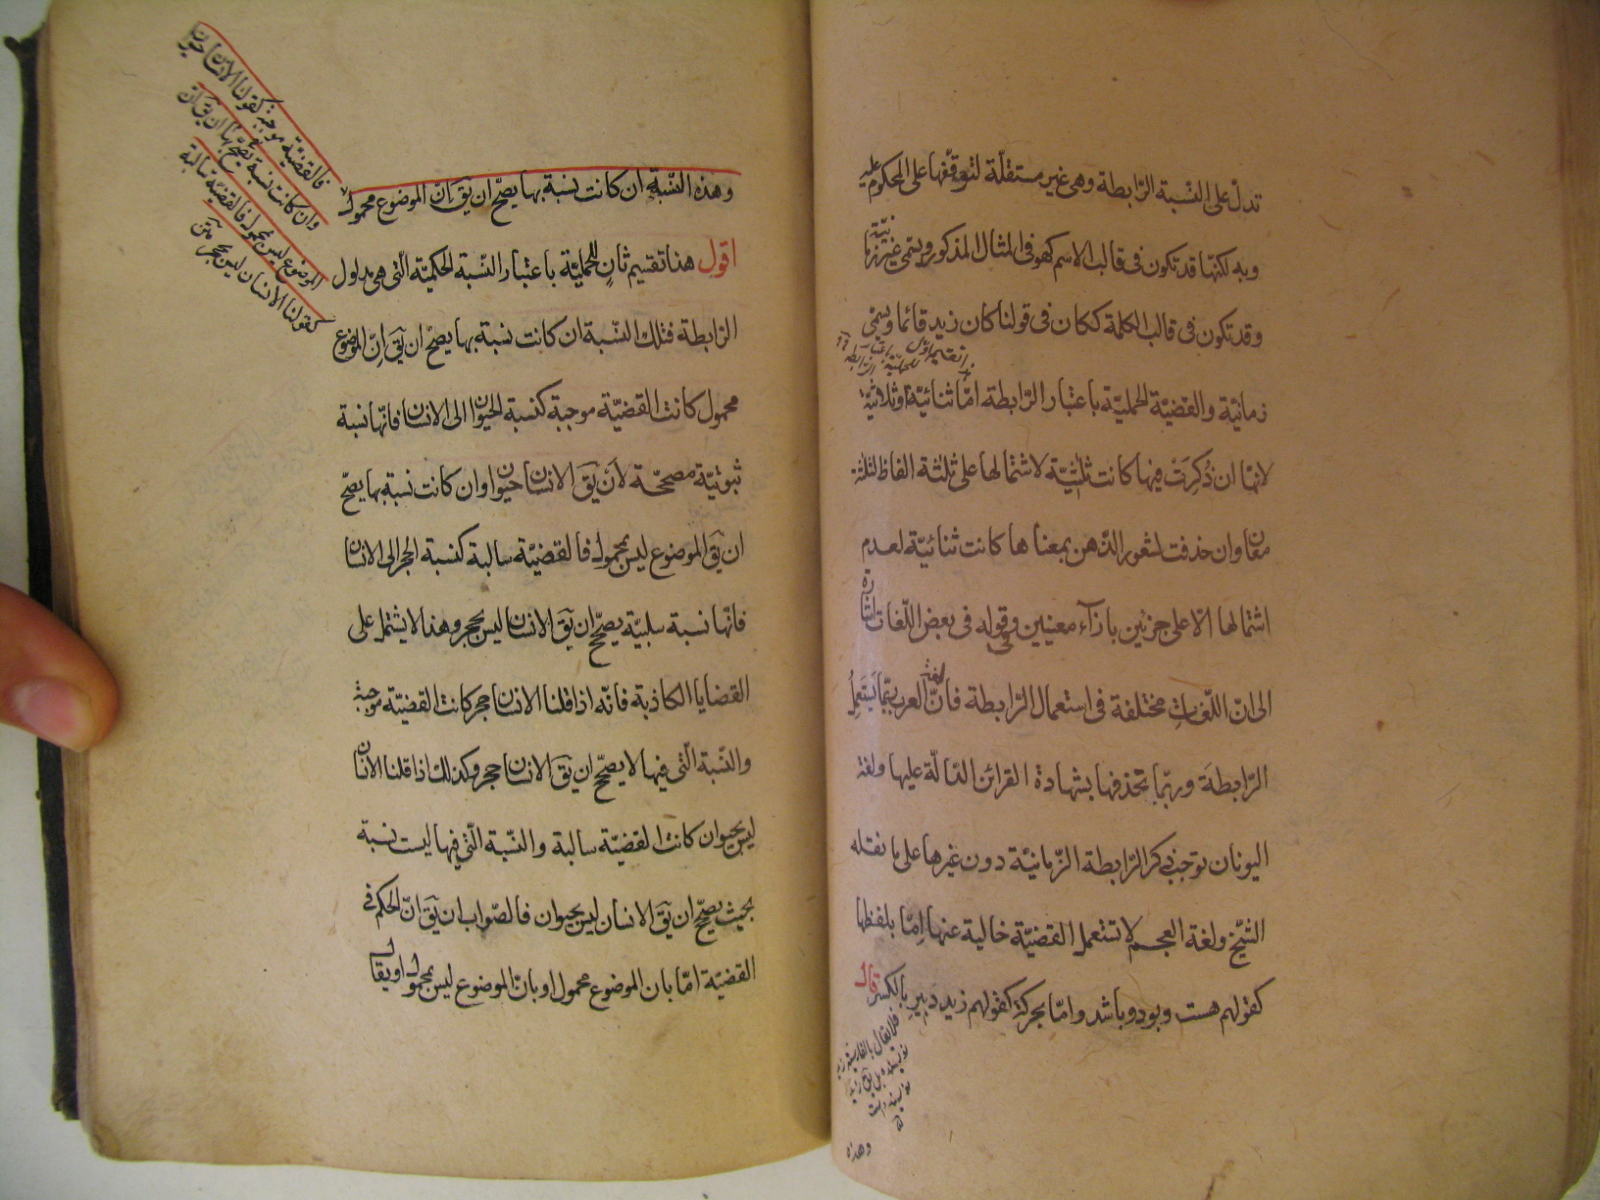 تدل على النسبة الرابطة وهى غير مستقلة لتوقفها على المحكوم عليه
وبه لكنها قد تكون فى قالب الاسم كهو فى المثال المذكور ويسمى غير زمانية
وقد تكون فى قالب الكلمة ككان فى قولنا كان زيد قائما ويسمى
زمانية والقضية الحملية باعتبار الرابطة امّا ثنائية او ثلاثية
لانها ان ذُكِرَتْ فيها كانت ثلثية لاشتمالها على ثلثة الفاظ لثلثة
معان وان حذفت لشعور الذهن بمعناها كانت ثنائية لعدم
اشتمالها الّا على جزئين بازآء معنيين وقوله فى بعض اللّغات اشارة
الى انّ اللّغات مختلفة فى استعمال الرّابطة فانّ لغة العرب ربّما يستعمل
الرّابطة وربّما تحذفها بشهادة القرائن الدّالّة عليها ولغة
اليونان توجب ذكر الرّابطة الزّمانيّة دون غيرها على ما نقله
الشيخ ولغة العجم لا تستعمل القضيّة خالية عنها امّا بلفظها
كقولهم هست وبود وباشد وامّا بحركة كقولهم زيد دبير بالكسر قال
وهذه
وهذه النّسبة ان كانت نسبة بها يصحّ ان يقَ انّ الموضوع محمول
فالقضيّة موجبة كقولنا الانسان حيوان
وان كانت نسبة يصحّ بها ان يقَ انّ
الموضوع ليس بمحمول فالقضيّة سالبة
كقولنا الانسان ليس بحجر
اقول هنا تقسيم ثانٍ للحمليّة باعتبار النّسبة الحكميّة الّتى هى مدلول
الرّابطة فتلك النّسبة ان كانت نسبة بها يصحّ ان يقَ انّ الموضوع
محمول كانت القضيّة موجبة كنسبة الحيوان الى الانسان فانّها نسبة
ثبوتيّة مصحّحة لأن يقَ الانسان حيوان وان كانت نسبة بها يصحّ
ان يقَ الموضوع ليس بمحمول فالقضيّة سالبة كنسبة الحجر الى الانسان
فانّها نسبة سلبيّة يصحّح ان يقَ الانسان ليس بحجر وهذا لا يشتمل على
القضايا الكاذبة فانّه اذا قلنا الانسان حجر كانت القضيّة موجبة
والنّسبة الّتى فيها لا يصحّح ان يقَ الانسان حجر وكذلك اذا قلنا الانسان
ليس بحيوان كانت القضيّة سالبة والنّسبة الّتى فيها ليست نسبة
بحيث يصحّح ان يقَ الانسان ليس بحيوان فالصّواب ان يقَ انّ الحكم فى
القضيّة امّا بان الموضوع محمول او بانّ الموضوع ليس بمحمول او يقال